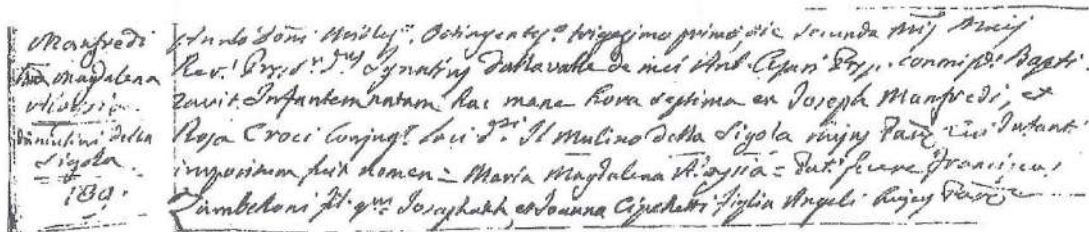 Manfredi
Ma Magdalena
Aloysia
Dai mulini della
Sigola
184.
Anno Dom̄i Milles.º Octingentes.º trigesimo primo die secunda M̄ij
Rev.s Presb.r D.nus Ignatius Dallavalle de mei Ant. Cesari Presb. commiss. Bapti-
zavit Infantem natam hac mane hora septima ex Joseph Manfredi, et
Rosa Croci Conjug. loci d.i Il Mulino della Sigola hujus Par. Cui Infanti
impositum fuit nomen = Maria Magdalena Aloysia = Pat.i fuere Franciscus
Zambeloni fil. q.m Josaphath et Joanna Cipelletti figlia Angeli hujus Par.